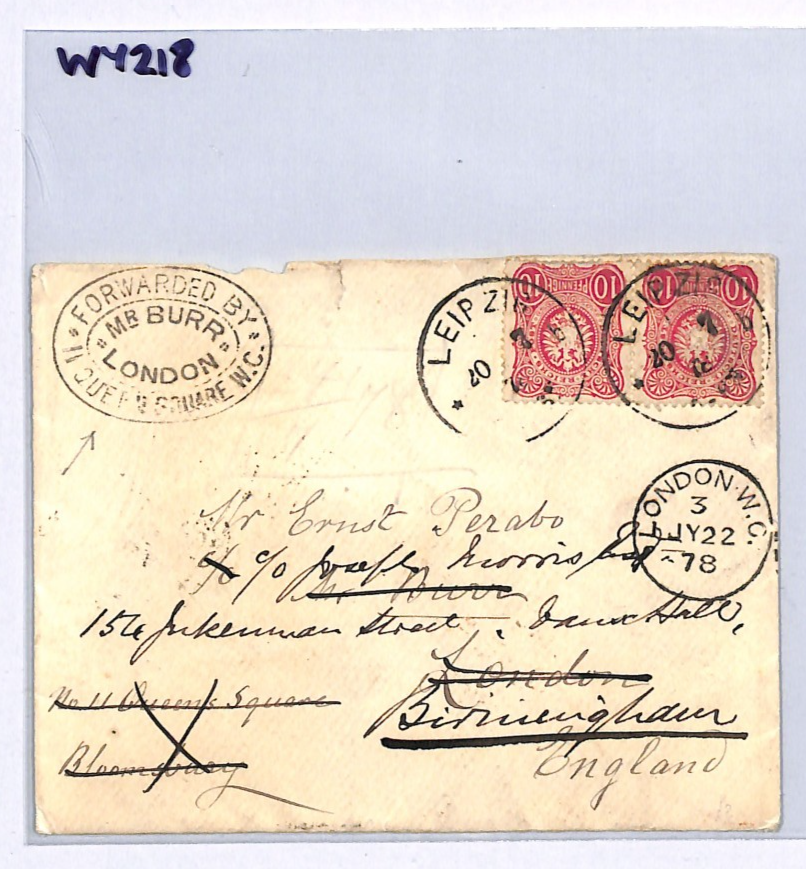 WY218
FORWARDED BY
MR BURR
LONDON
11 QUEEN SQUARE W.C.
10 PFENNIG 10
10
LEIPZIG
20 7
LEIPZIG
20 7
LONDON. W.C.
3
JY22
78
Mr Ernst Perabo
c/o Joseph Morris Esq
Mr Burr
Street. Vauxhall,
London
No 11 Queens Square
Birmingham
Bloomsbury
England